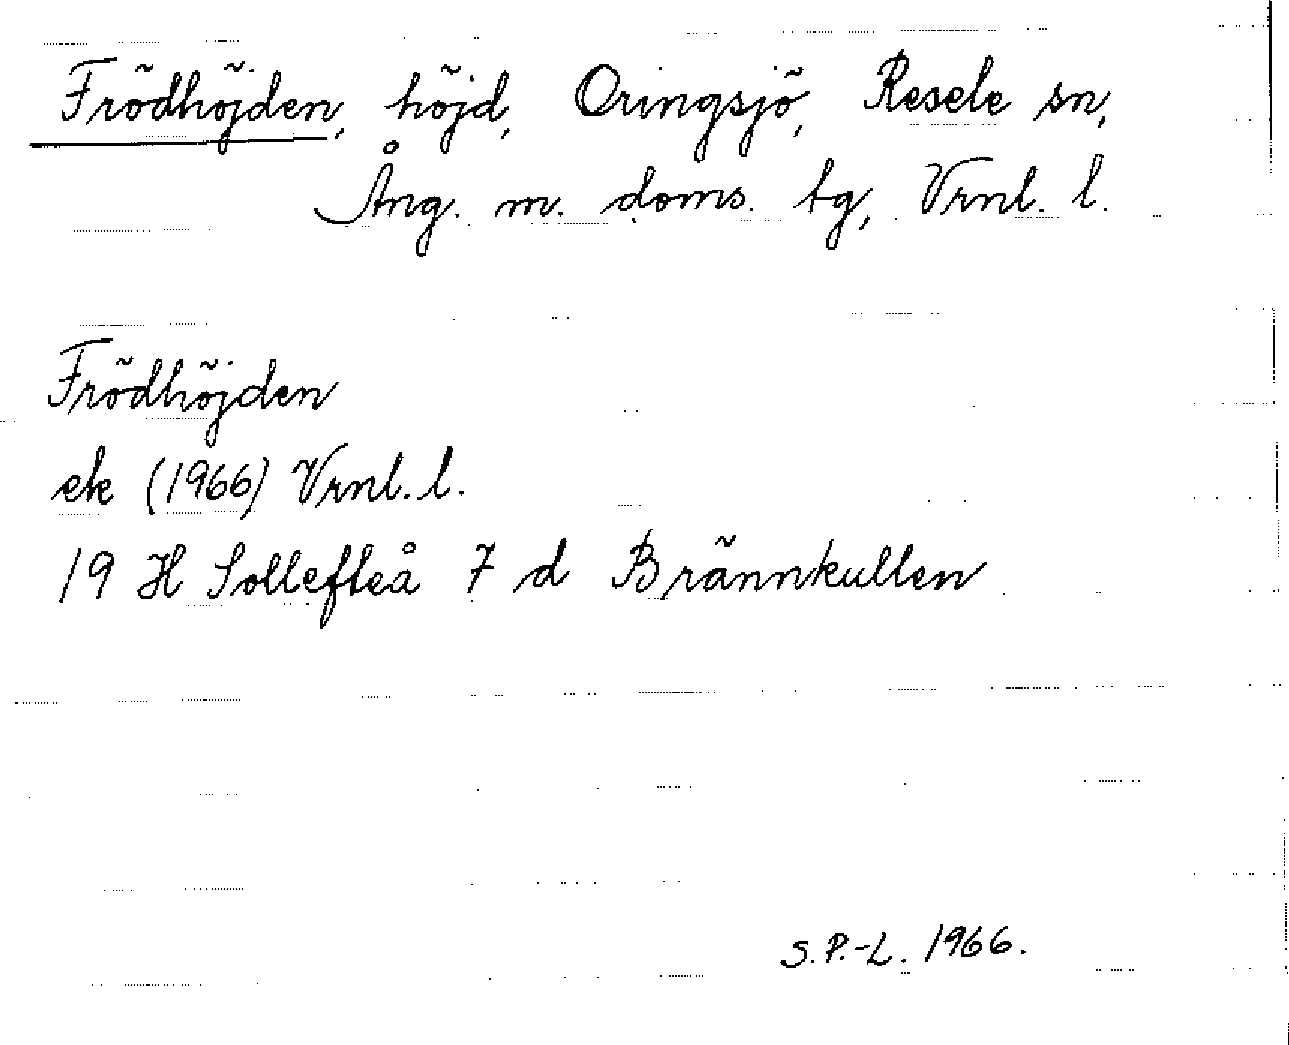 Frödhöjden, höjd, Oringsjö, Resele sn,
Ång. m. doms. tg, Vrnl. l.
Frödhöjden
ek (1966) Vrnl. l.
19 H Sollefteå 7 d Brännkullen
S.P.-L. 1966.